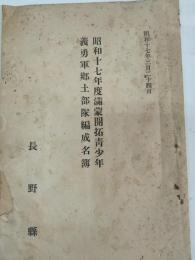 昭和十七年三月二十四日
昭和十七年度滿蒙開拓靑少年
義勇軍鄕土部隊編成名簿
長野縣